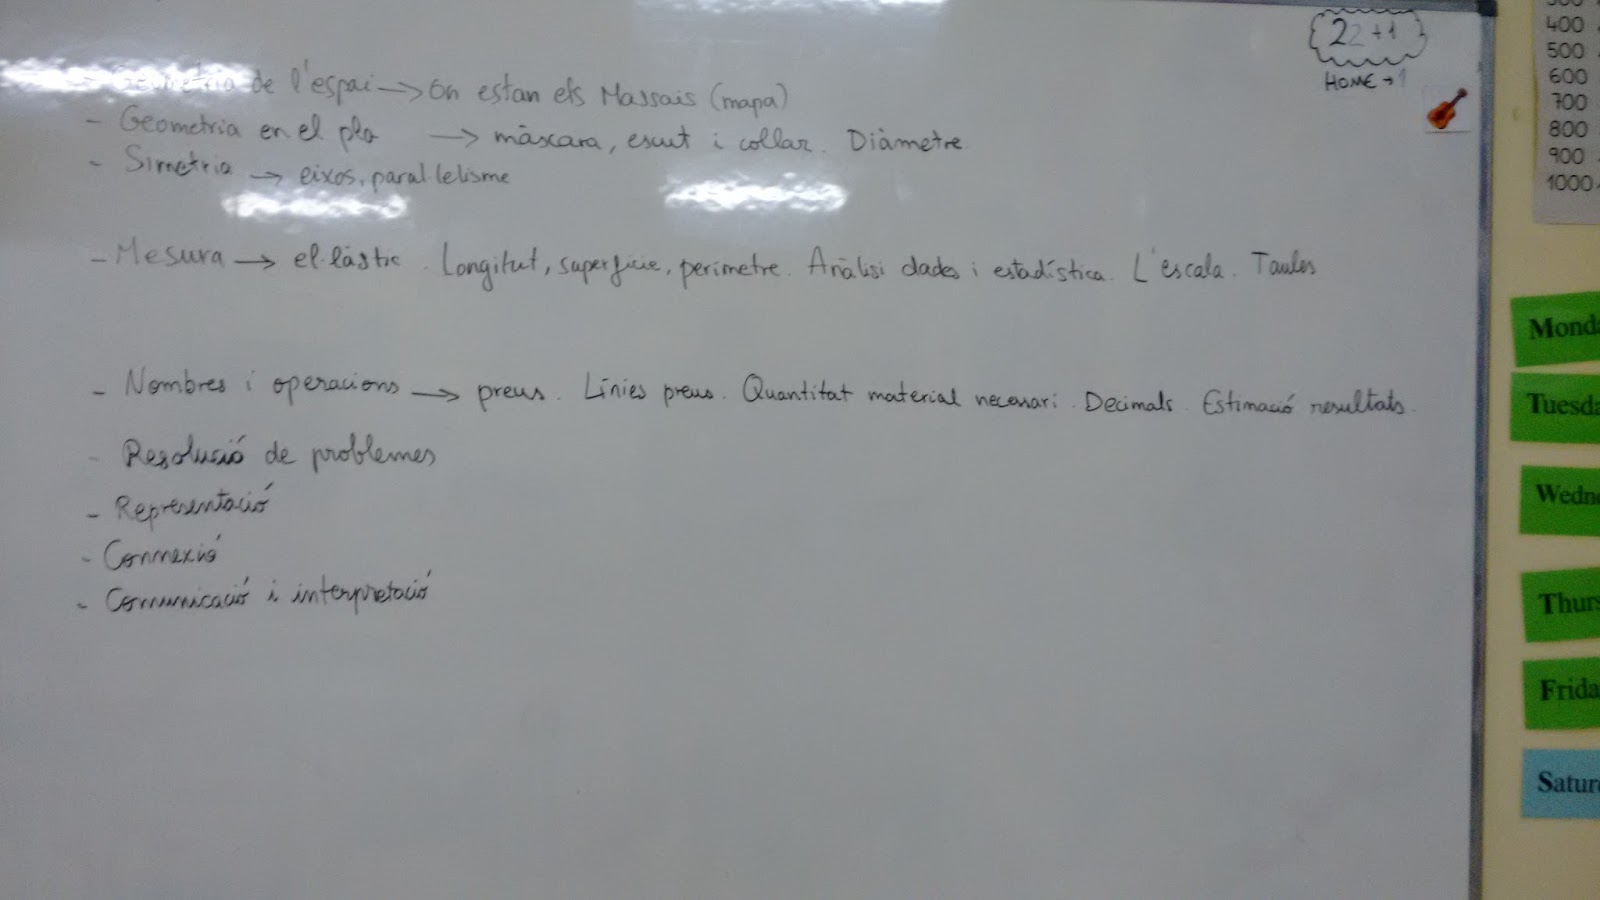 22+1
HOME → 1
- Geometria de l'espai → On estan els Massais (mapa)
- Geometria en el pla → màscara, escut i collar. Diàmetre.
- Simetria → eixos, paral·lelisme
- Mesura → el·làstic. Longitut, superfície, perímetre. Anàlisi dades i estadística. L'escala. Taules
- Nombres i operacions → preus. Línies preus. Quantitat material necessari. Decimals. Estimació resultats.
- Resolució de problemes
- Representació
- Connexió
- Comunicació i interpretació
400
500
600
700
800
900
1000
Monda
Tuesda
Wedn
Thurs
Frida
Satur